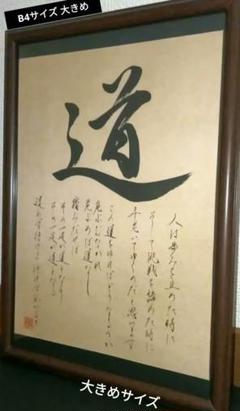 B4サイズ 大きめ
道
人は歩みを止めた時に
そして挑戦を諦めた時に
年老いて行くのだと思います
この道を行けばどうなるものか
危ぶむなかれ
危ぶめば道はなし
踏み出せば
その一足が道となり
その一足が道となる
大きめサイズ